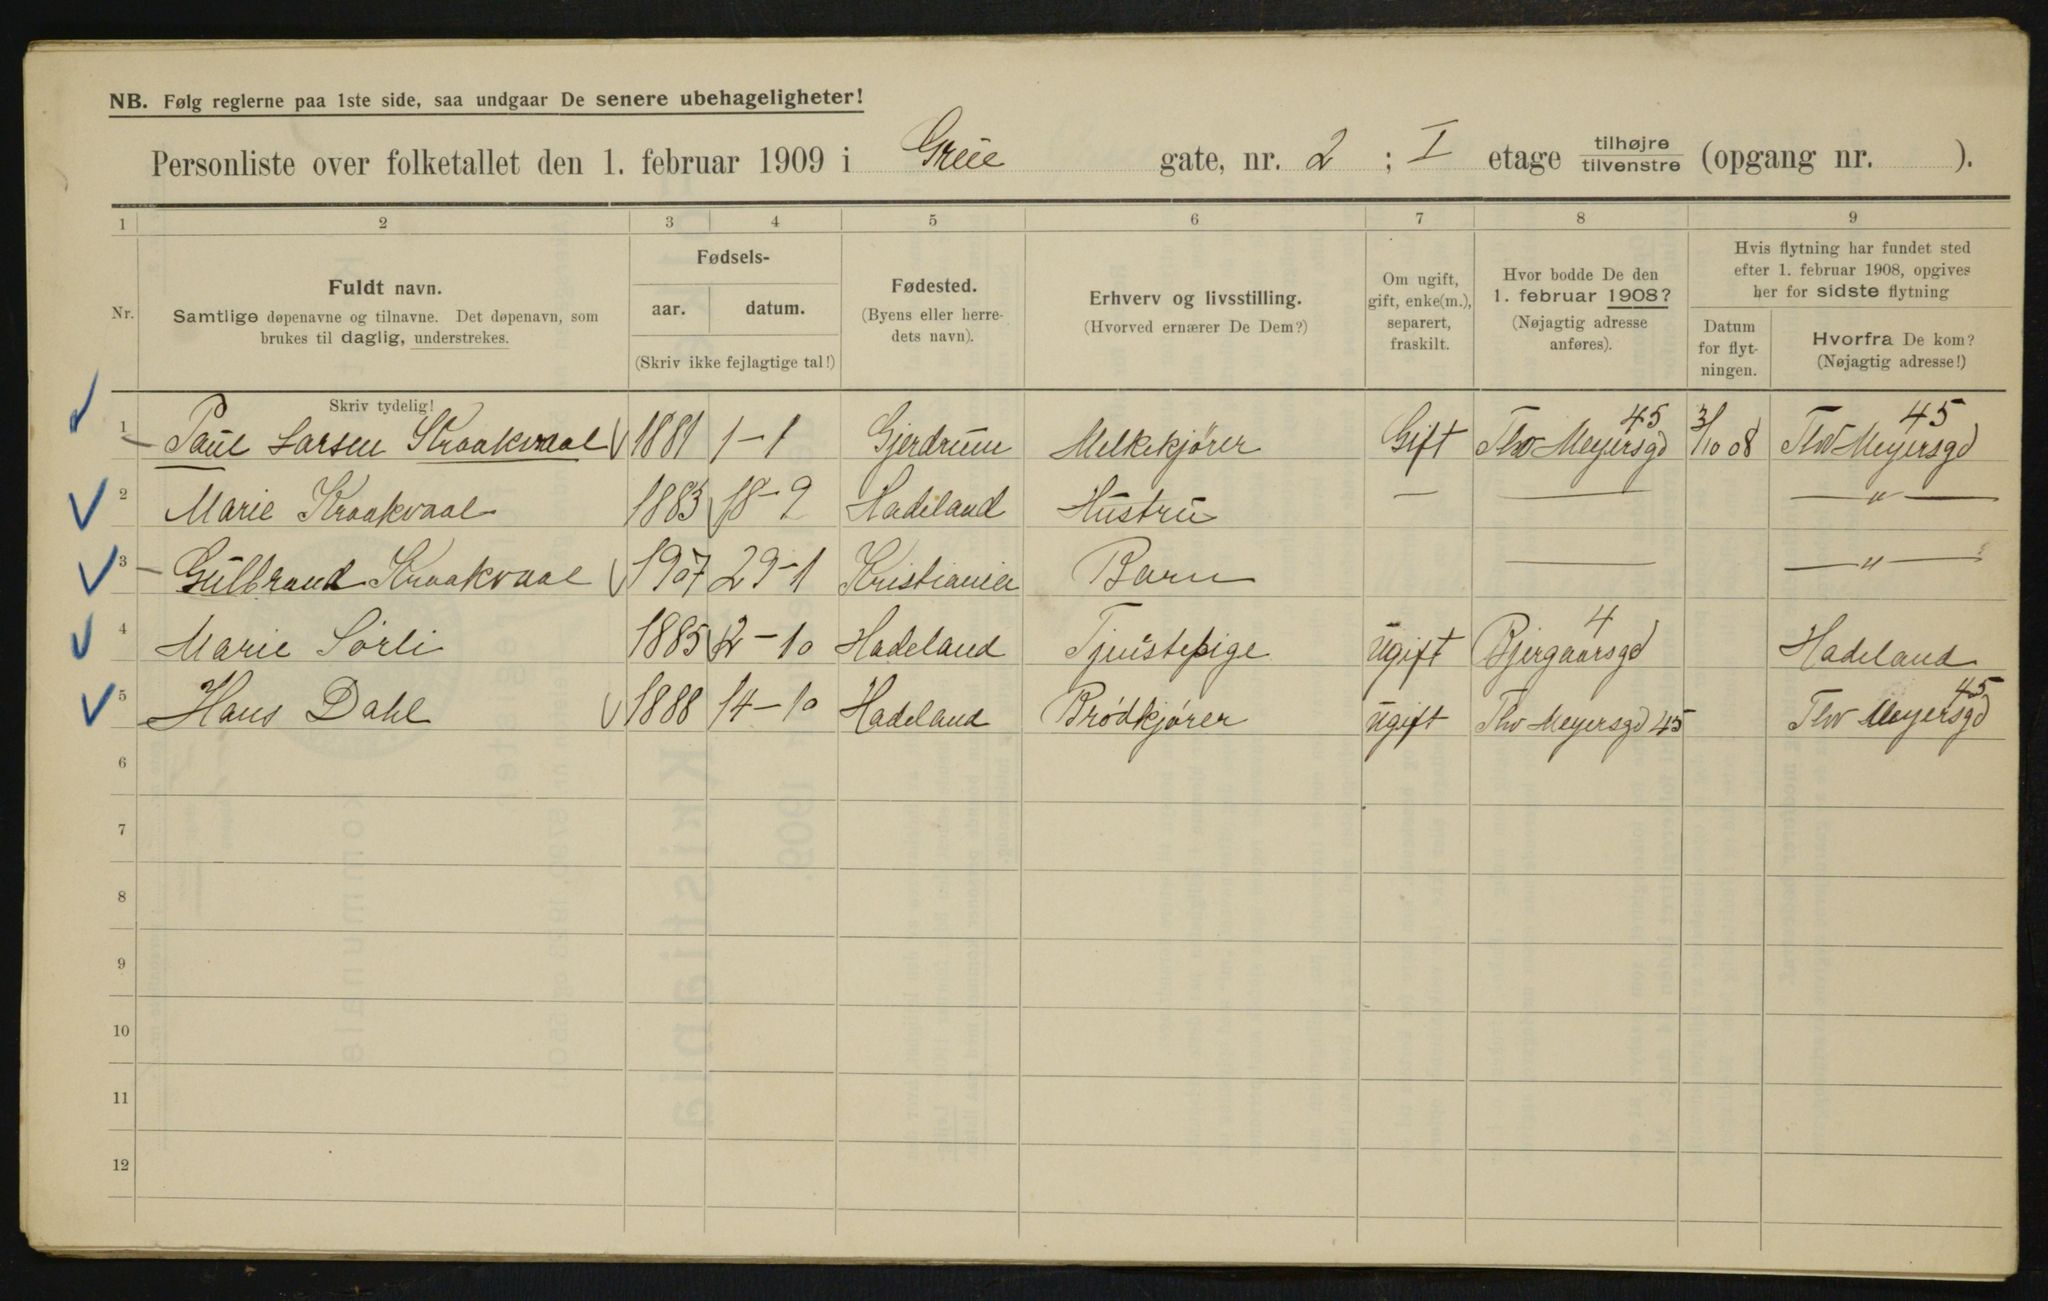 NB. Følg reglerne paa 1ste side, saa undgaar De senere ubehageligheter!
Personliste over folketallet den 1. februar 1909 i Grüe gate, nr. 2 ; I etage tilhøjre tilvenstre (opgang nr. ).
1 2 3 4 5 6 7 8 9
Nr.
Fuldt navn.
Samtlige døpenavne og tilnavne. Det døpenavn, som
brukes til daglig, understrekes.
Skriv tydelig!
Fødsels-
aar. datum.
(Skriv ikke fejlagtige tal!)
Fødested.
(Byens eller herre-
dets navn).
Erhverv og livsstilling.
(Hvorved ernærer De Dem?)
Om ugift,
gift, enke(m.),
separert,
fraskilt.
Hvor bodde De den
1. februar 1908?
(Nøjagtig adresse
anføres).
Hvis flytning har fundet sted
efter 1. februar 1908, opgives
her for sidste flytning
Datum
for flyt-
ningen.
Hvorfra De kom?
(Nøjagtig adresse!)
1 Paul Larsen Kraakvaal 1881 1-1 Gjerdrum Melkekjører Gift Thv Meyersgd 45 3/10 08 Thv Meyersgd 45
2 Marie Kraakvaal 1883 18-2 Hadeland Hustru — — — " —
3 Gulbrand Kraakvaal 1907 29-1 Kristiania Barn — — " —
4 Marie Sörli 1885 2-10 Hadeland Tjenstepige Ugift Bjergaarsgd 4 Hadeland
5 Hans Dahl 1888 14-10 Hadeland Brödkjører Ugift Thv Meyersgd 45 Thv Meyersgd 45
6
7
8
9
10
11
12